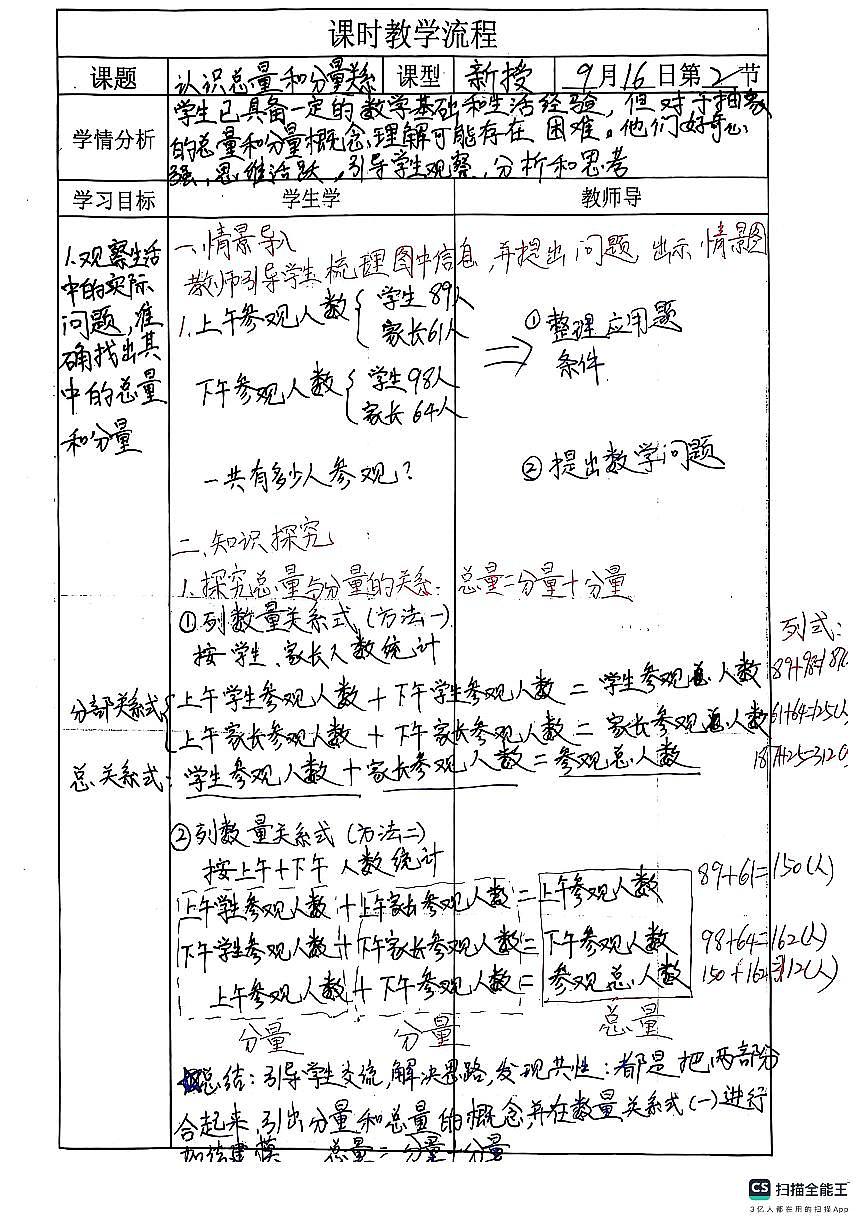 课时教学流程
课题 认识总量和分量关系 课型 新授 9月16日第2节
学情分析
学生已具备一定的数学基础和生活经验，但对于抽象
的总量和分量概念,理解可能存在困难。他们好奇心
强,思维活跃,引导学生观察,分析和思考
学习目标 学生学 教师导
1.观察生活
中的实际
问题,准
确找出其
中的总量
和分量
一、情景导入
教师引导学生梳理图中信息,并提出问题,出示情景图
1.上午参观人数 { 学生89人
家长61人
① 整理应用题
条件
下午参观人数 { 学生98人
家长64人
一共有多少人参观?
② 提出数学问题
二、知识探究
1.探究总量与分量的关系: 总量=分量+分量
①列数量关系式 (方法一)
按学生、家长人数统计
列式:
分部关系式 { 上午学生参观人数 + 下午学生参观人数 = 学生参观总人数 89+98=187
上午家长参观人数 + 下午家长参观人数 = 家长参观总人数 61+64=125(人)
总关系式: 学生参观人数+家长参观人数=参观总人数 187+125=312
②列数量关系式 (方法二)
按上午+下午 人数统计
上午学生参观人数+上午家长参观人数=上午参观人数 89+61=150(人)
下午学生参观人数+下午家长参观人数=下午参观人数 98+64=162(人)
上午参观人数 + 下午参观人数 = 参观总人数 150+162=312(人)
分量 分量 总量
总结: 引导学生交流,解决思路,发现共性: 都是把两部分
合起来,引出分量和总量的概念,并在数量关系式(一)进行
加法建模 总量=分量+分量
CS 扫描全能王
3亿人都在用的扫描App